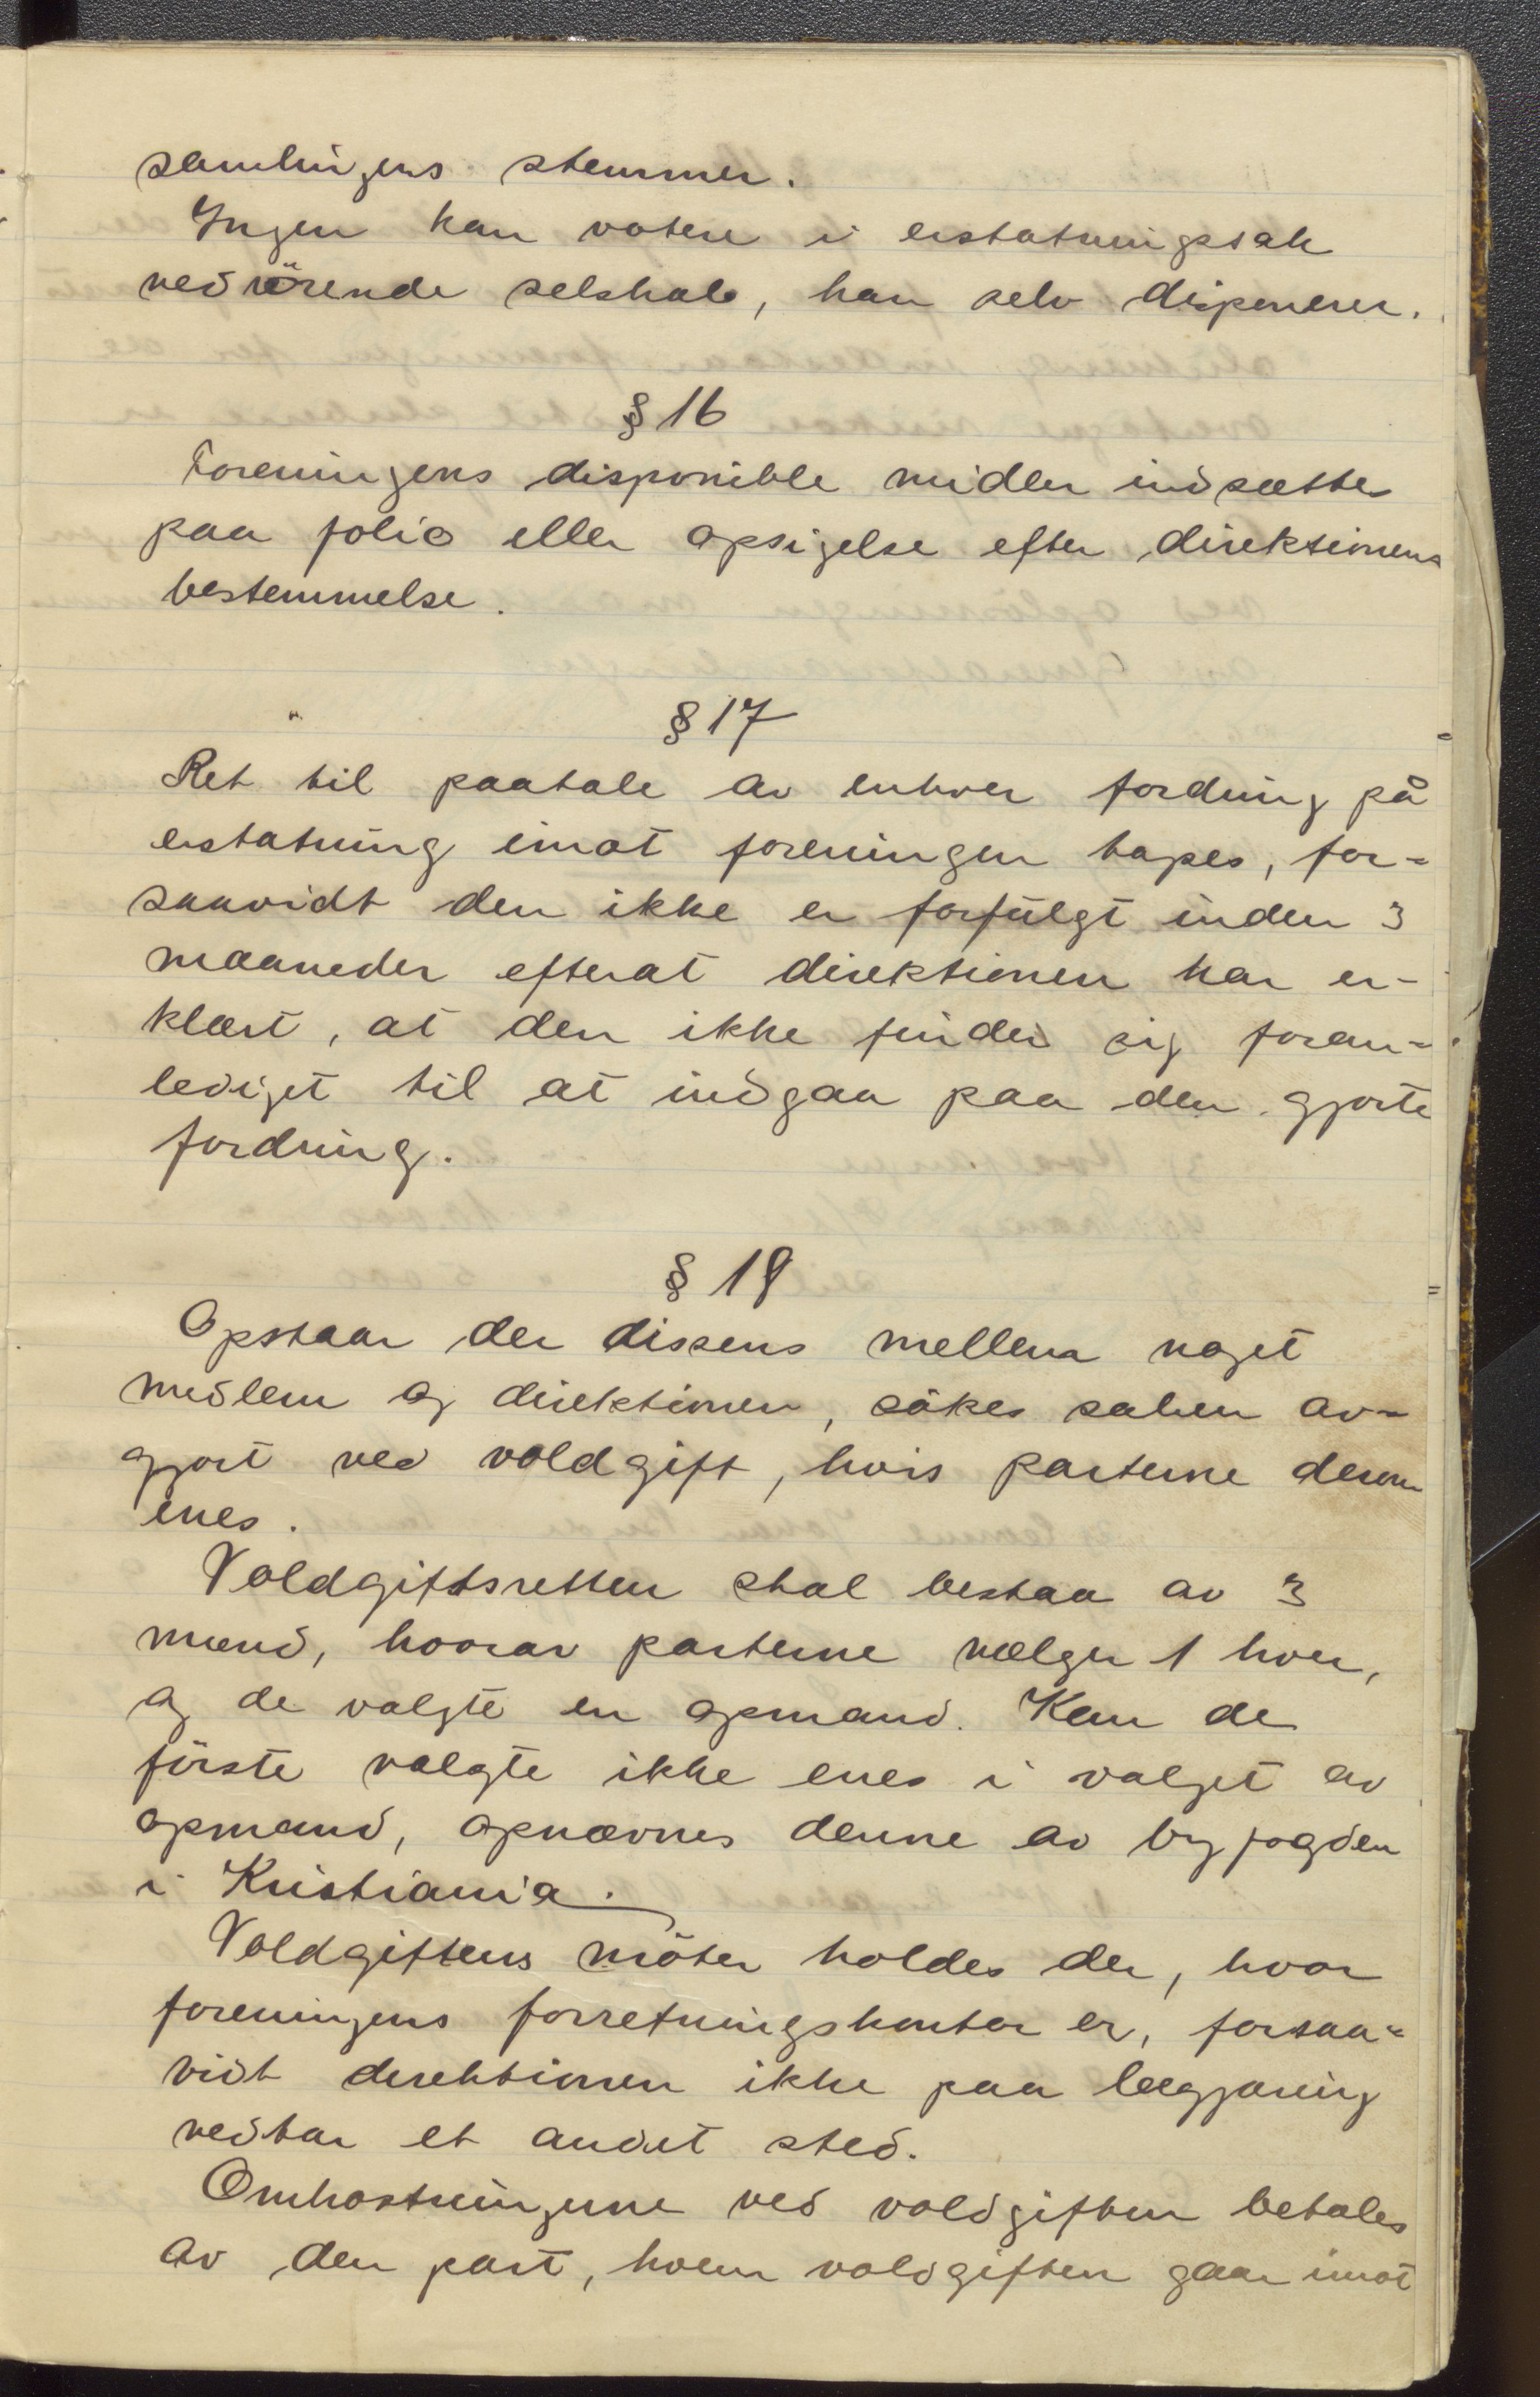 samlingens stemmer.
Ingen kan votere i erstatningssak
vedrörende selskab, han selv disponerer.
§ 16
Foreningens disponible midler indsættes
paa folio eller opsigelse efter direktionens
bestemmelse.
§ 17
Ret til paatale av enhver fordring på
erstatning imot foreningen tapes, for-
saavidt den ikke er forfulgt inden 3
maaneder efterat direktionen har er-
klært, at den ikke finder sig foran-
lediget til at indgaa paa den gjorte
fordring.
§ 18
Opstaar der dissens mellem noget
medlem og direktionen, sökes saken av-
gjort ved voldgift, hvis parterne derom
enes.
Voldgiftsretten skal bestaa av 3
mænd, hvorav parterne vælger 1 hver,
og de valgte en opmand. Kan de
förste valgte ikke enes i valget av
opmand, opnævnes denne av byfogden
i Kristiania.
Voldgiftens möter holdes der, hvor
foreningens forretningskontor er, forsaa-
vidt direktionen ikke paa begjæring
vedtar et andet sted.
Omkostningerne ved voldgiften betales
av den part, hvem voldgiften gaar imot